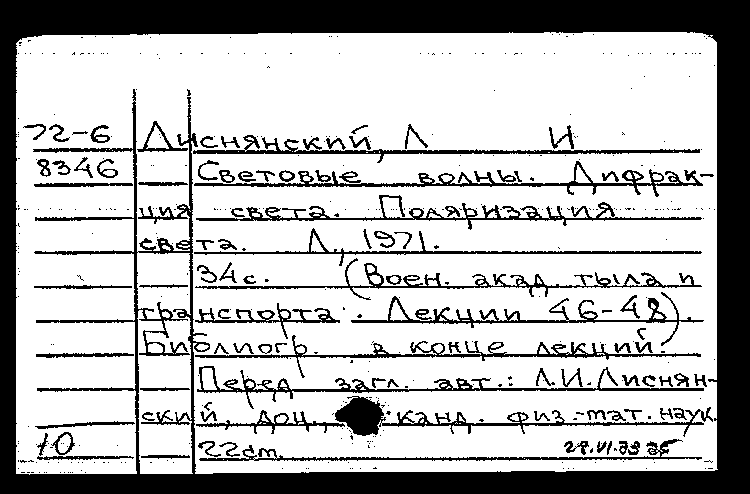 72-6 Лиснянский, Л И
8346 Световые волны. Дифрак-
ция света. Поляризация
света. Л., 1971.
34с. (Воен. акад. тыла и
транспорта. Лекции 46-48).
Библиогр. в конце лекций.
Перед загл. авт.: Л.И.Лиснян-
ский, доц., канд. физ.-мат. наук.
10 22cm.